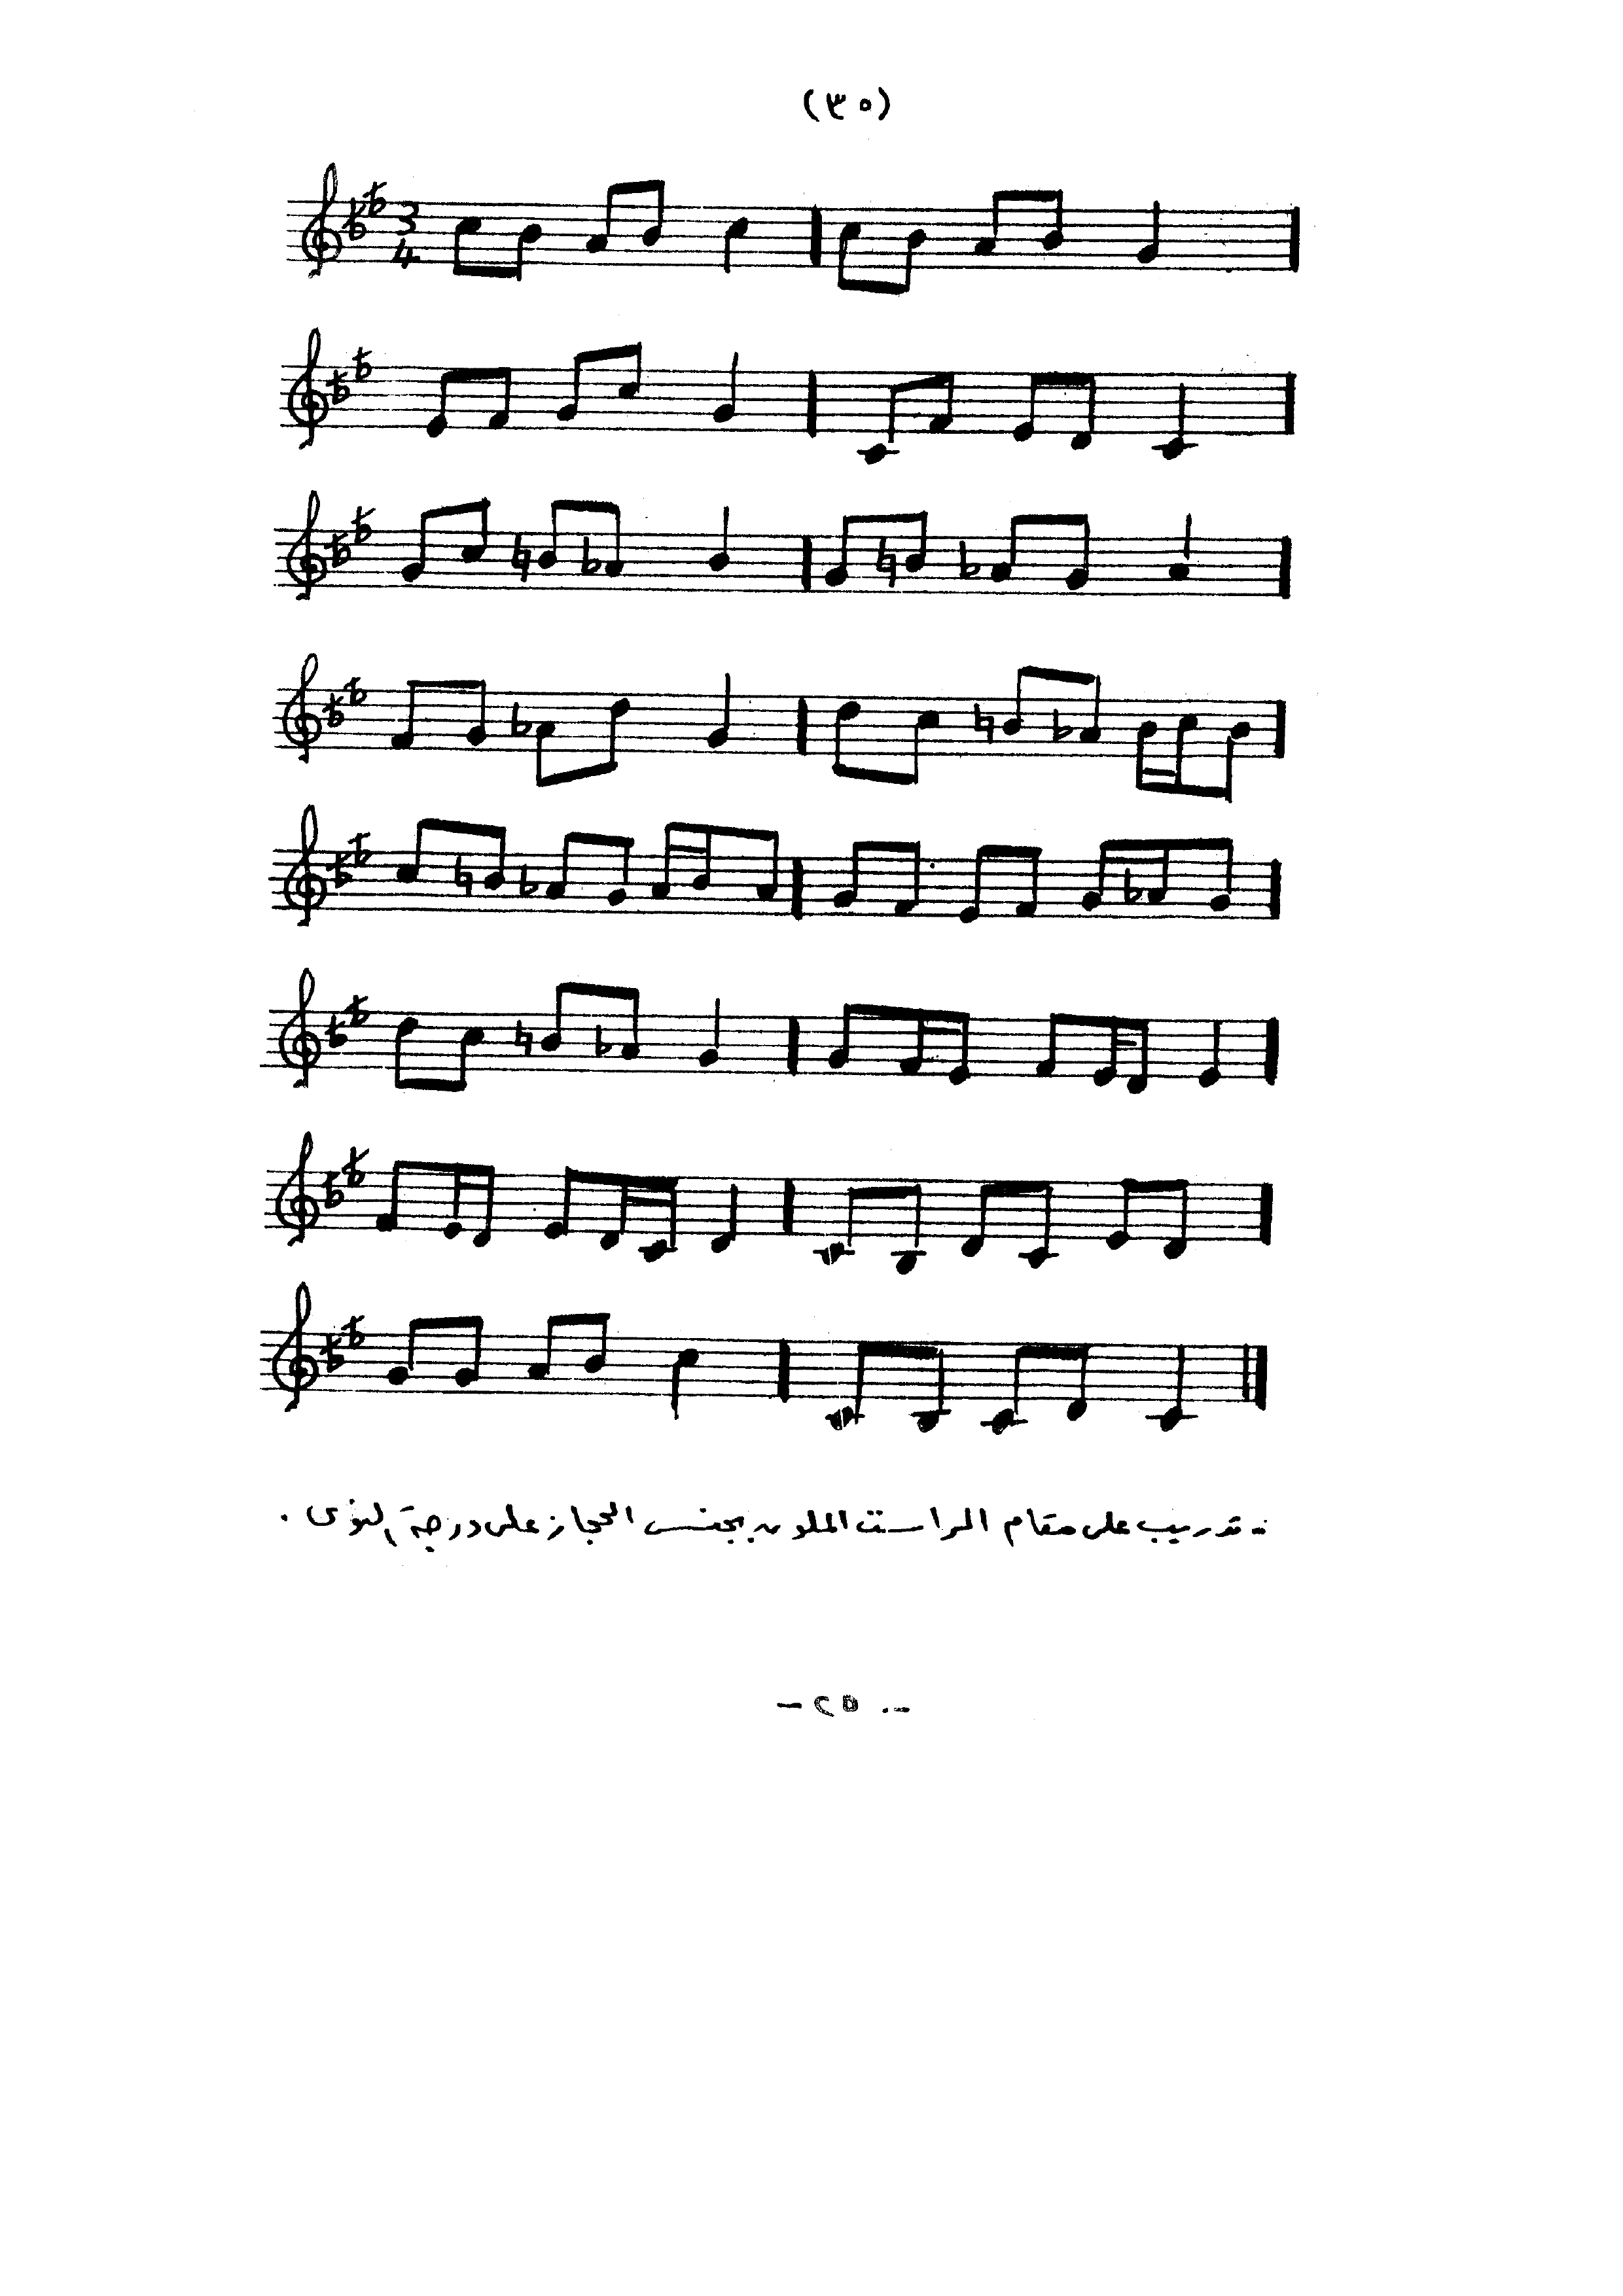 (٣٥)
3
4
- تدريب على مقام الراست الملون بجنس الحجاز على درجة النوى .
- ٢٥ -